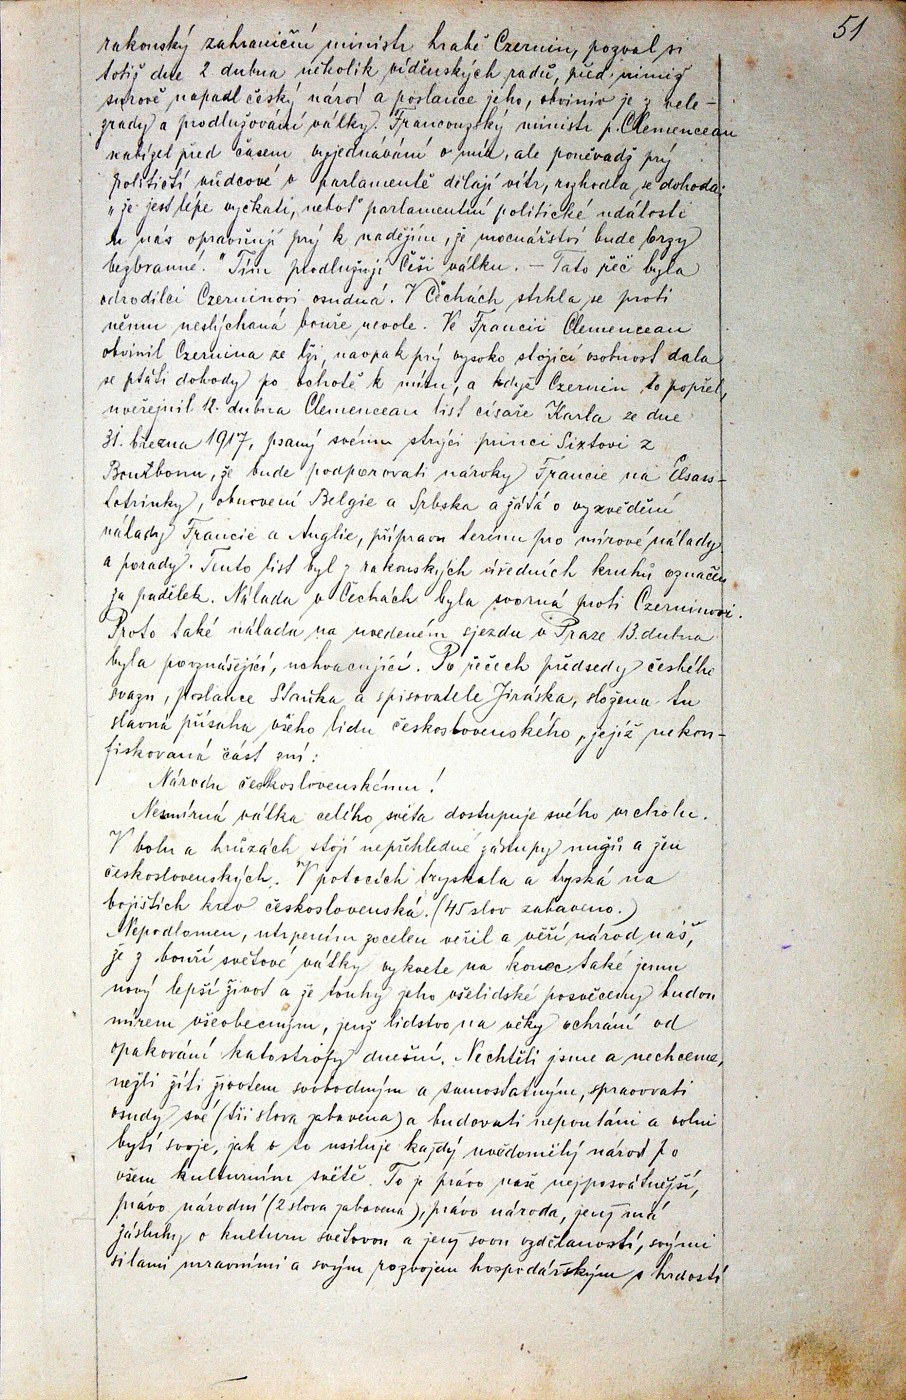 51
rakouský zahraniční ministr hrabě Czernin, pozval si
totiž dne 2 dubna několik vídeňských radů, před nimiž
surově napadl český národ a poslance jeho, obviniv je z vele-
zrady a prodlužování války. Francouzský ministr p. Clemenceau
nabízel před časem vyjednávání o mír, ale poněvadž prý
političtí vůdcové v parlamentě dělají vítr, rozhodla se dohoda,
„že jest lépe vyčkati, neboť parlamentní politické události
u nás opravňují prý k nadějím, že mocnářství bude brzy
bezbranné." Tím prodlužují Češi válku. – Tato řeč byla
odrodilci Czerninovi osudná. V Čechách strhla se proti
němu neslýchaná bouře nevole. Ve Francii Clemenceau
obvinil Czernina ze lži, naopak prý vysoko stojící osobnost dala
se ptáti dohody po ochotě k míru, a když Czernin to popřel,
uveřejnil 12. dubna Clemenceau list císaře Karla ze dne
31. března 1917, psaný svému strýci princi Sixtovi z
Bourbonu, že bude podporovati nároky Francie na Elsass-
Lotrinky, obnovení Belgie a Srbska a žádá o vyzvědění
nálady Francie a Anglie, přípravu terénu pro mírové nálady
a porady. Tento list byl z rakouských úředních kruhů označen
za padělek. Nálada v Čechách byla svorná proti Czerninovi.
Proto také nálada na uvedeném sjezdu v Praze 13. dubna
byla povznášející, uchvacující. Po řečech předsedy českého
svazu, poslance Staňka a spisovatele Jiráska, složena tu
slavná přísaha všeho lidu československého, jejíž nekon-
fiskovaná část zní:
Národu československému!
Nesmírná válka celého světa dostupuje svého vrcholu.
V bolu a hrůzách stojí nepřehledné zástupy mužů a žen
československých. V potocích tryskala a tryská na
bojištích krev československá. (45 slov zabaveno.)
Nepodlomen, utrpením zocelen věřil a věří národ náš,
že z bouří světové války vykvete na konec také jemu
nový lepší život a že touhy jeho všelidské posvěceny budou
mírem všeobecným, jenž lidstvo na věky ochrání od
opakování katastrofy dnešní. Nechtěli jsme a nechceme,
nežli žíti životem svobodným a samostatným, spravovati
osudy své (tři slova zabavena) a budovati nepoutáni a volni
bytí svoje, jak o to usiluje každý uvědomělý národ po
všem kulturním světě. To je právo naše nejposvátnější,
právo národní (2 slova zabavena), právo národa, jenž má
zásluhy o kulturu světovou a jenž svou vzdělaností, svými
silami mravními a svým rozvojem hospodářským s hrdostí